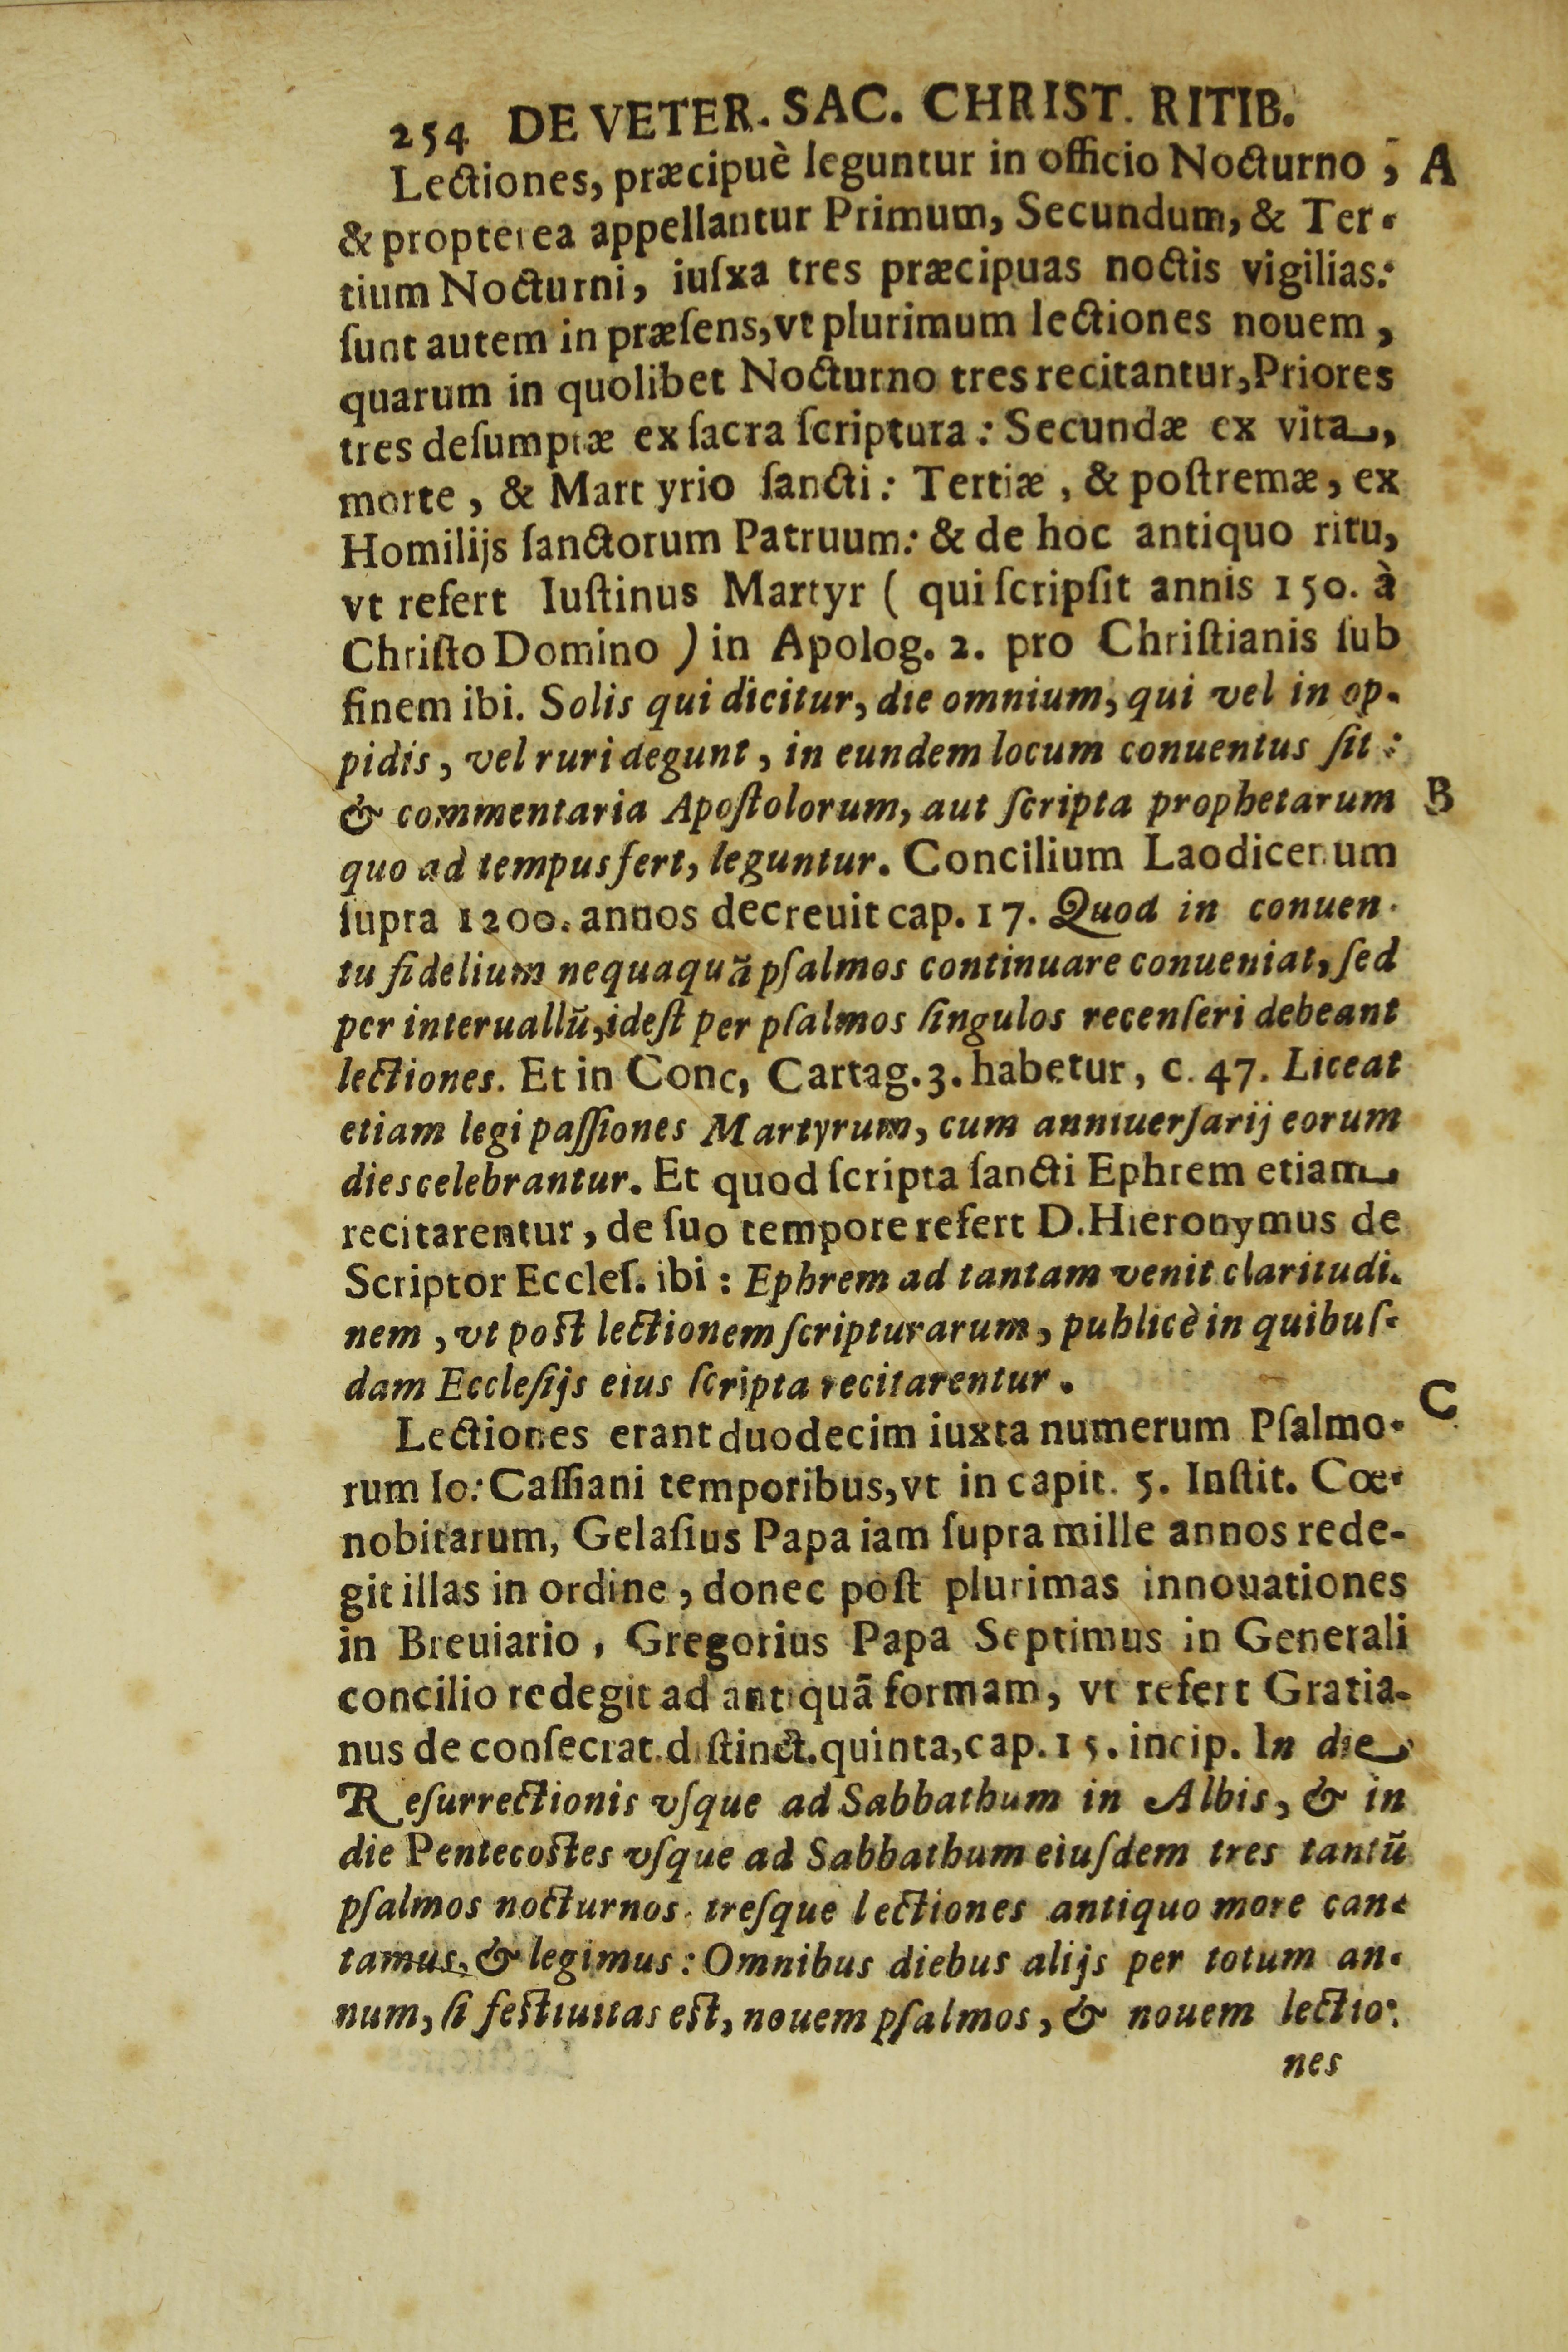 254 DE VETER. SAC. CHRIST. RITIB.
Lectiones, præcipuè leguntur in officio Nocturno, A
& propterea appellantur Primum, Secundum, & Ter-
tium Nocturni, iuſxa tres præcipuas noctis vigilias:
ſunt autem in præſens, vt plurimum lectiones nouem,
quarum in quolibet Nocturno tres recitantur, Priores
tres deſumptæ ex ſacra ſcriptura: Secundæ ex vita,
morte, & Martyrio ſancti: Tertiæ, & poſtremæ, ex
Homilijs ſanctorum Patruum: & de hoc antiquo ritu,
vt refert Iuſtinus Martyr ( qui ſcripſit annis 150. à
Chriſto Domino ) in Apolog. 2. pro Chriſtianis ſub
finem ibi. Solis qui dicitur, die omnium, qui vel in op-
pidis, vel ruri degunt, in eundem locum conuentus ſit:
& commentaria Apoſtolorum, aut ſcripta prophetarum B
quo ad tempus fert, leguntur. Concilium Laodicenum
ſupra 1200. annos decreuit cap. 17. Quod in conuen-
tu fidelium nequaquã pſalmos continuare conueniat, ſed
per interuallũ, ideſt per pſalmos ſingulos recenſeri debeant
lectiones. Et in Conc, Cartag. 3. habetur, c. 47. Liceat
etiam legi paſſiones Martyrum, cum anniuerſarij eorum
dies celebrantur. Et quod ſcripta ſancti Ephrem etiam
recitarentur, de ſuo tempore refert D. Hieronymus de
Scriptor Eccleſ. ibi: Ephrem ad tantam venit claritudi-
nem, vt poſt lectionem ſcripturarum, publicè in quibuſ-
dam Eccleſijs eius ſcripta recitarentur.
C
Lectiones erant duodecim iuxta numerum Pſalmo-
rum Io: Caſſiani temporibus, vt in capit. 5. Inſtit. Cœ-
nobitarum, Gelaſius Papa iam ſupra mille annos rede-
git illas in ordine, donec poſt plurimas innouationes
in Breuiario, Gregorius Papa Septimus in Generali
concilio redegit ad antiquã formam, vt refert Gratia-
nus de conſecrat. diſtinct. quinta, cap. 15. incip. In die
Reſurrectionis vſque ad Sabbathum in Albis, & in
die Pentecoſtes vſque ad Sabbathum eiuſdem tres tantũ
pſalmos nocturnos. treſque lectiones antiquo more can-
tamus, & legimus: Omnibus diebus alijs per totum an-
num, ſi feſtiuitas eſt, nouem pſalmos, & nouem lectio-
nes